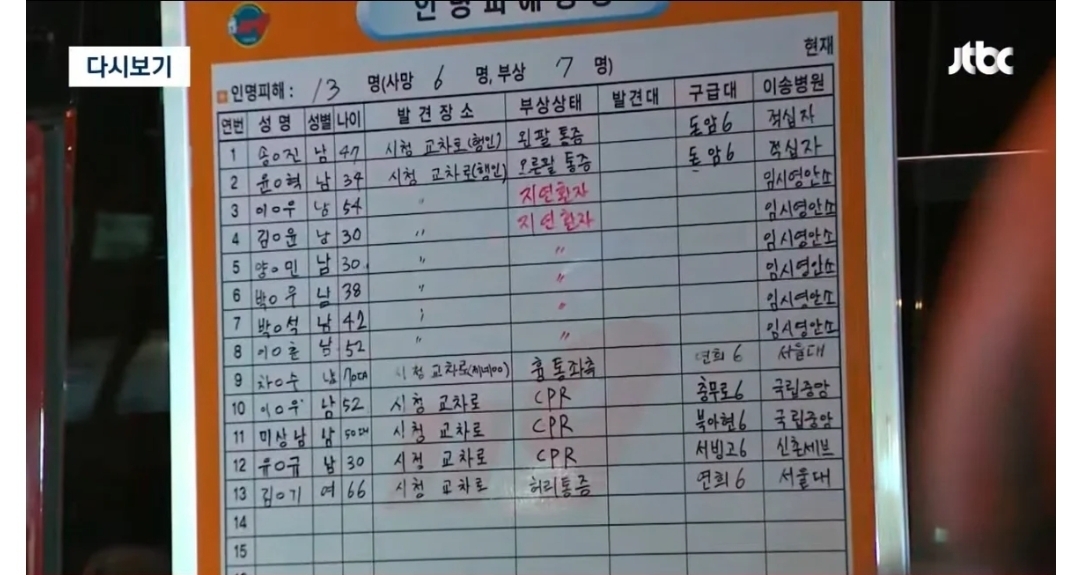 인명피해현황
다시보기
jtbc
현재
인명피해 : 13 명(사망 6 명, 부상 7 명)
연번 성명 성별 나이 발견장소 부상상태 발견대 구급대 이송병원
1 송○진 남 47 시청 교차로(행인) 왼팔 통증 돈암6 적십자
2 윤○혁 남 34 시청 교차로(행인) 오른팔 통증 돈암6 적십자
3 이○우 남 54 〃 지연환자 임시영안소
4 김○윤 남 30 〃 지연환자 임시영안소
5 양○민 남 30. 〃 〃 임시영안소
6 박○우 남 38 〃 〃 임시영안소
7 박○석 남 42 〃 〃 임시영안소
8 이○훈 남 52 〃 〃 임시영안소
9 차○수 남 70대 시청 교차로 흉통좌측 연희6 서울대
10 이○우 남 52 시청 교차로 CPR 충무로6 국립중앙
11 미상남 남 50대 시청 교차로 CPR 북아현6 국립중앙
12 유○규 남 30 시청 교차로 CPR 서빙고6 신촌세브
13 김○기 여 66 시청 교차로 허리통증 연희6 서울대
14
15